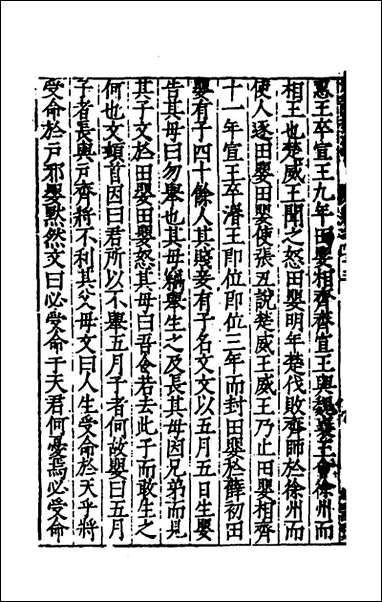 惠王卒宣王九年田嬰相齊齊宣王與魏襄王會徐州而
相王也楚威王聞之怒田嬰明年楚伐敗齊師於徐州而
使人逐田嬰田嬰使張丑說楚威王威王乃止田嬰相齊
十一年宣王卒湣王即位即位三年而封田嬰於薛初田
嬰有子四十餘人其賤妾有子名文文以五月五日生嬰
告其母曰勿舉也其母竊舉生之及長其母因兄弟而見
其子文於田嬰田嬰怒其母曰吾令若去此子而敢生之
何也文頓首因曰君所以不舉五月子者何故嬰曰五月
子者長與戶齊將不利其父母文曰人生受命於天乎將
受命於戶邪嬰默然文曰必受命于天君何憂焉必受命